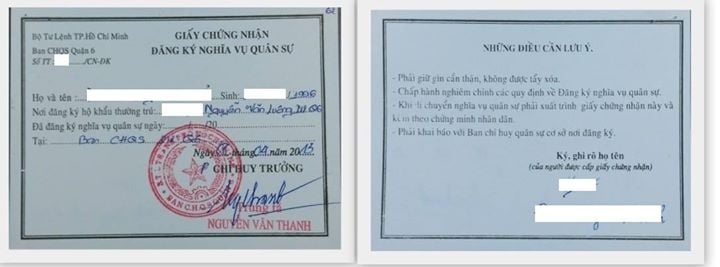 Bộ Tư Lệnh TP.Hồ Chí Minh
Ban CHQS Quận 6
Số TT: /CN-ĐK
GIẤY CHỨNG NHẬN
ĐĂNG KÝ NGHĨA VỤ QUÂN SỰ
Họ và tên: Sinh: /1996
Nơi đăng ký hộ khẩu thường trú: Nguyễn Văn Luông
Đã đăng ký nghĩa vụ quân sự ngày: / /20
Tại: Ban CHQS
Ngày 04 năm 2013
CHỈ HUY TRƯỞNG
BAN C.H.Q.S QUẬN 6
Trung tá
NGUYỄN VĂN THANH
NHỮNG ĐIỀU CẦN LƯU Ý.
- Phải giữ gìn cẩn thận, không được tẩy xóa.
- Chấp hành nghiêm chỉnh các quy định về Đăng ký nghĩa vụ quân sự.
- Khi di chuyển nghĩa vụ quân sự phải xuất trình giấy chứng nhận này và
kèm theo chứng minh nhân dân.
- Phải khai báo với Ban chỉ huy quân sự cơ sở nơi đăng ký.
Ký, ghi rõ họ tên
(của người được cấp giấy chứng nhận)